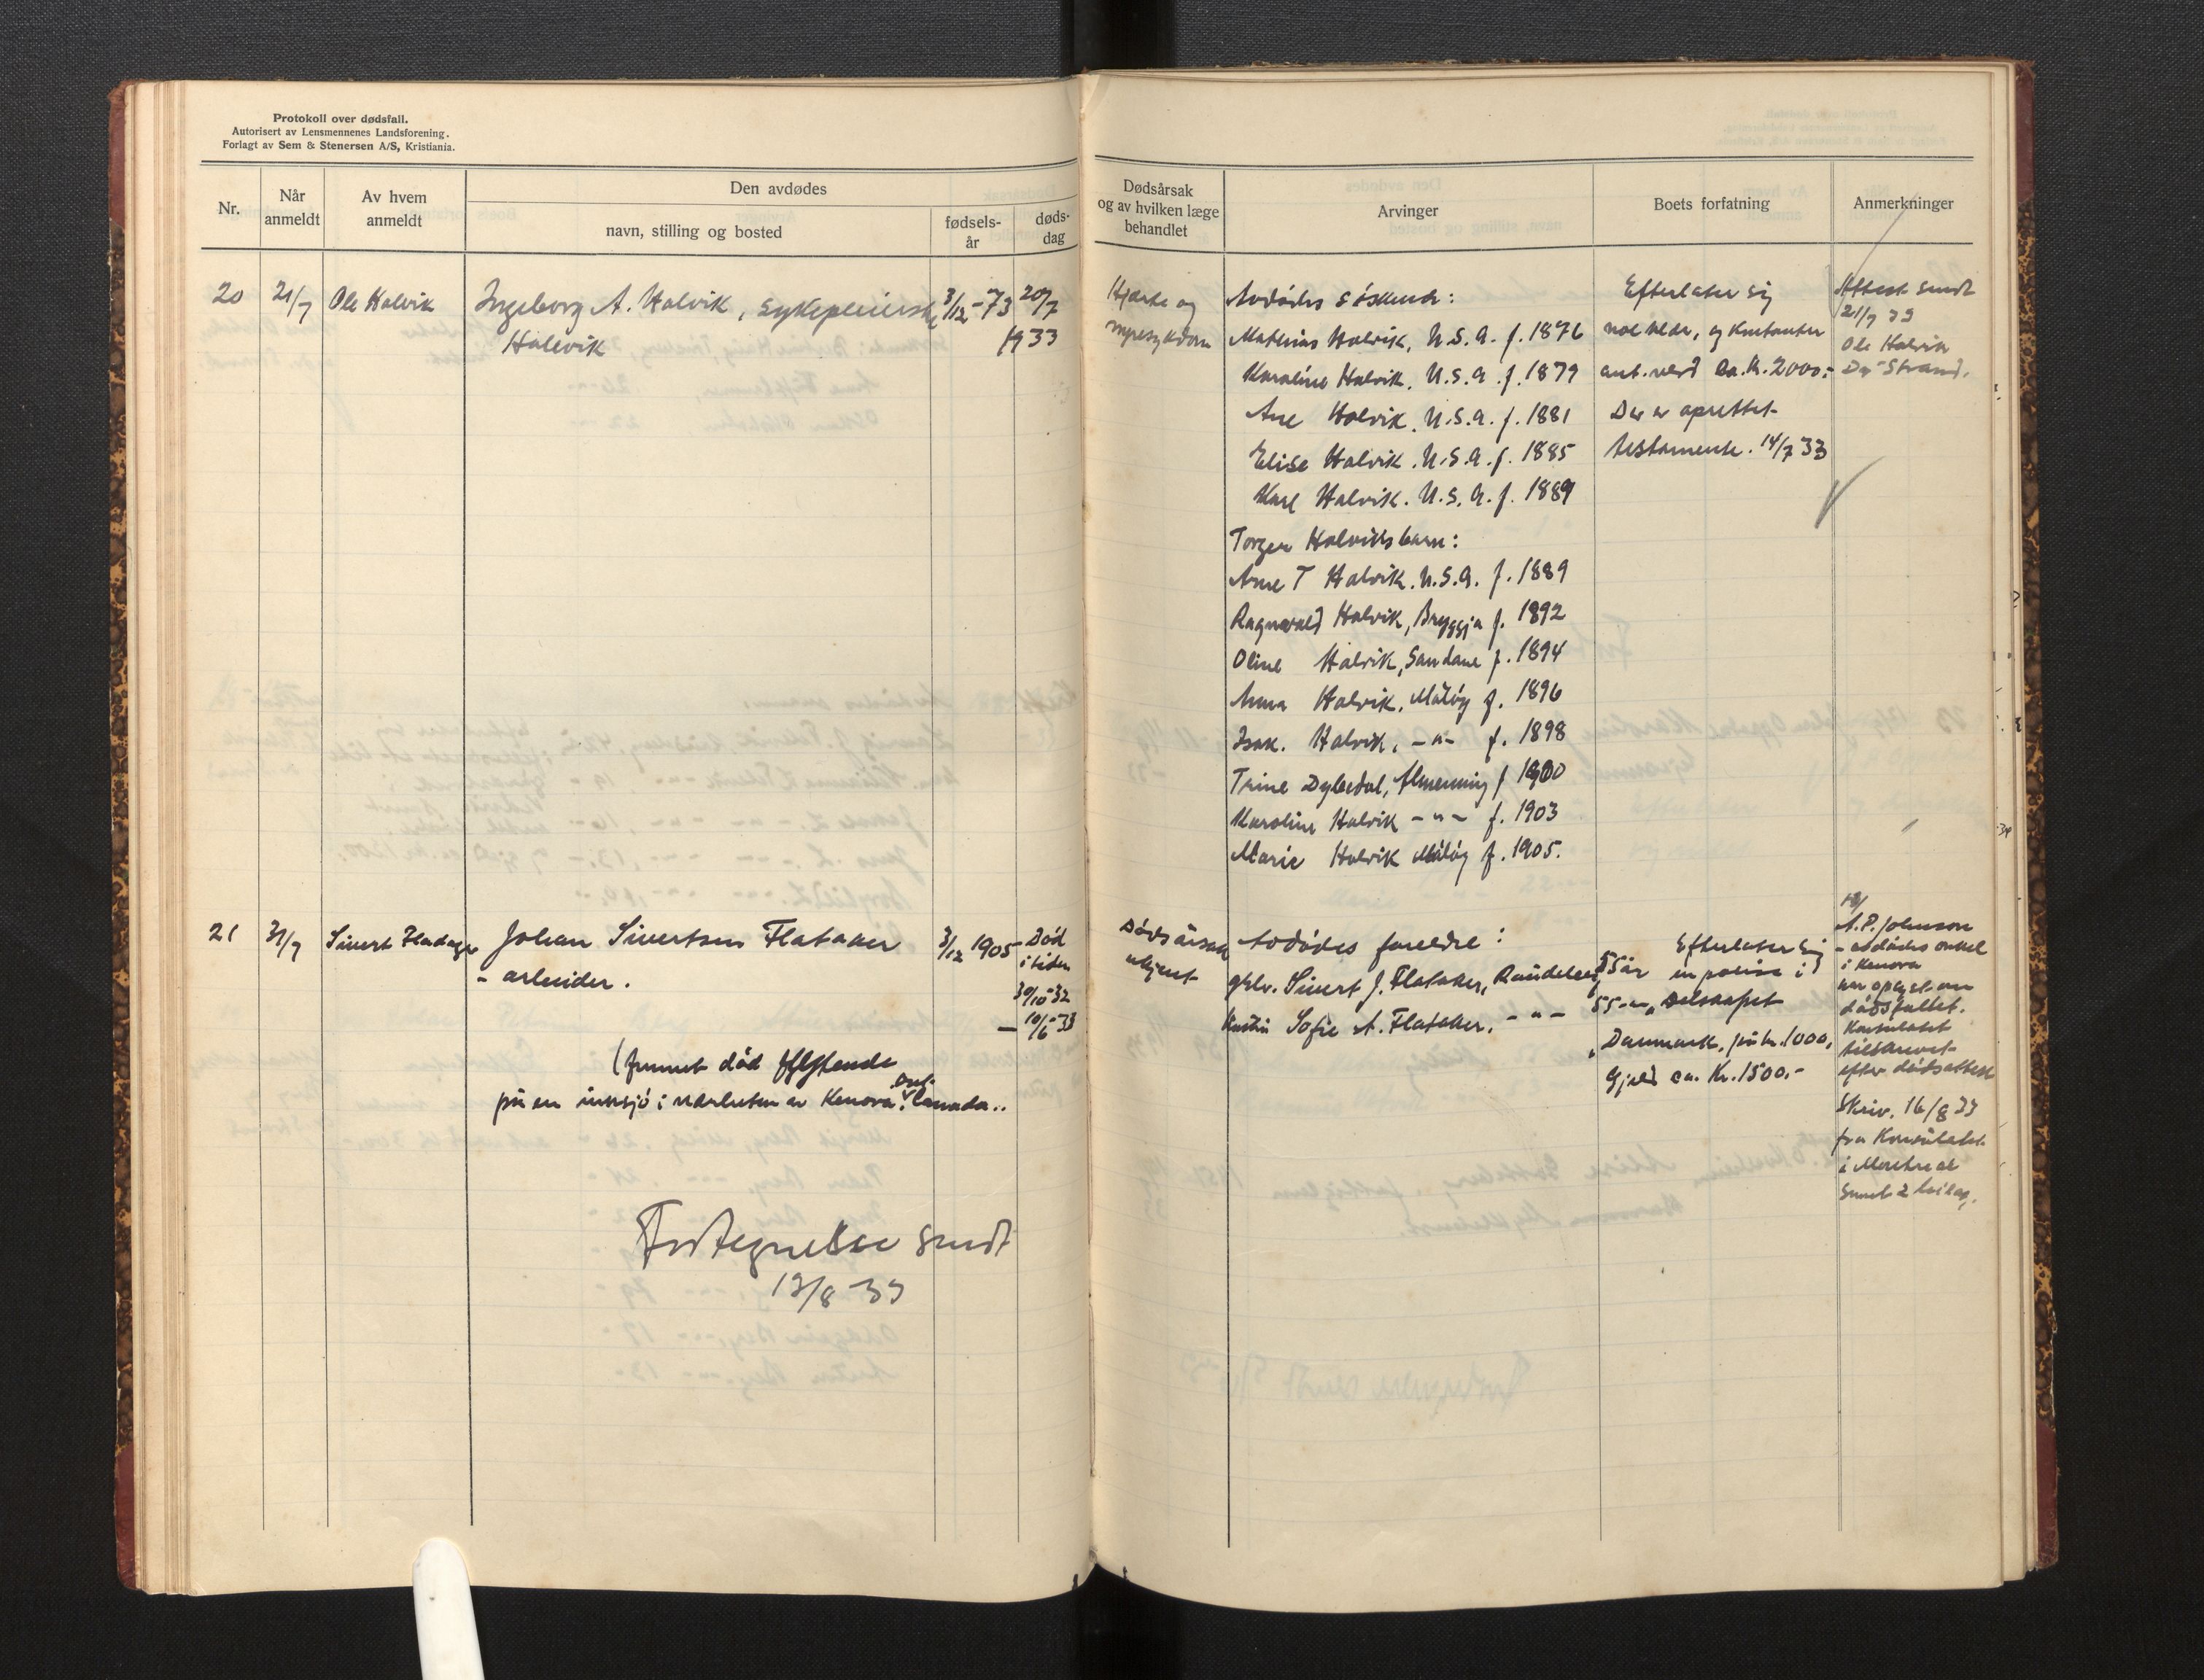 Protokoll over dødsfall.
Autorisert av Lensmennenes Landsforening.
Forlagt av Sem & Stenersen A/S, Kristiania.
Nr.
Når anmeldt
Av hvem anmeldt
Den avdødes
navn, stilling og bosted
fødsels-
år
døds-
dag
20
21/7
Ole Halvik
Ingeborg A. Halvik, sykepleierske
Halevik
3/12 -73
20/7
1933
21
31/7
Sivert
Johan Sivertsen Flataker
- arbeider.
3/12 1905
Død
i tiden
30/10-32
— 10/6-33
(funnet død flytende
på en innsjö i nærheten av Kenora. Ont. Canada..
Fortegnelse sendt
13/8-33
Dødsårsak
og av hvilken læge
behandlet
Arvinger
Boets forfatning
Anmerkninger
Hjerte og
nyresykdom
Avdødes søskende:
Mathias Halvik, U.S.A. f. 1876
Karoline Halvik. U.S.A. f. 1879
Ane Halvik. U.S.A. f. 1881
Elise Halvik. U.S.A. f. 1885
Karl Halvik. U.S.A. f. 1889
Torger Halviks barn:
Arne T Halvik. U.S.A. f. 1889
Ragnvald Halvik, Bryggja f. 1892
Oline Halvik, Sandane f. 1894
Anna Halvik, Måløy f. 1896
Isak. Halvik, -"- f. 1898
Trine Dybedal, Almenning f 1900
Karoline Halvik -"- f. 1903
Marie Halvik Måløy f. 1905.
Efterlater sig
noe klær, og kontanter
ant. verd ca. kr. 2000.-
Der er oprettet
testamente. 14/7 33
Attest sendt
21/7 33
Ole Halvik
Strand.
Dødsårsak
ukjent
Avdødes foreldre:
Sivert J. Flataker, Raudeberg, 55 år
Sofie A. Flataker. -"- 55 -"-
Efterlater sig
en polise i
selskapet
"Danmark", på kr. 1000,
Gjeld ca. Kr. 1500.-
A.P. Johnson
- avdødes onkel
i Kenora
har oplyst om
dødsfallet.
Konsulatet
tilskrevet
efter dødsattest
Skriv. 16/8 33
fra Konsulatet
i Montreal
sendt 2 bilag.